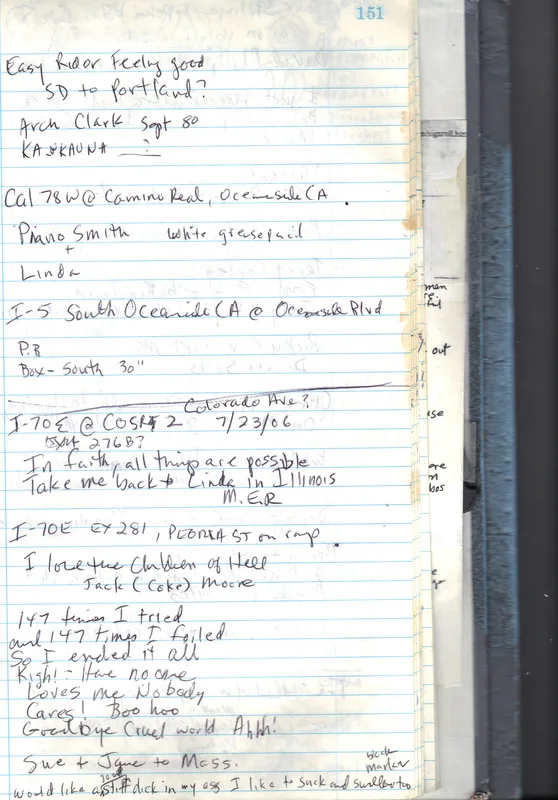 151
Easy Rider Feeling good
SD to Portland?
Arch Clark Sept 80
KAUKAUNA ?
Cal 78W @ Camino Real, Oceanside CA.
Piano Smith white greasepencil
+
Linda
I-5 South Oceanside CA @ Oceanside Blvd
P.B
Box - South 30"
Colorado Ave?
I-70E @ COSR 2 7/23/06
Exit 276B?
In faith, all things are possible
Take me back to Linda in Illinois
M.E.R
I-70E EX 281, PEORIA ST on ramp.
I love the Children of Hell
Jack (Coke) Moore
147 times I tried
and 147 times I failed
So I ended it all
Right - Have no one
Loves me Nobody
Cares! Boo hoo
Goodbye Cruel world Ahhh!
Sue + Jane to Mass.
black
marker
would like a stiff dick in my ass I like to suck and swallow too
men
out
use
ere
bos